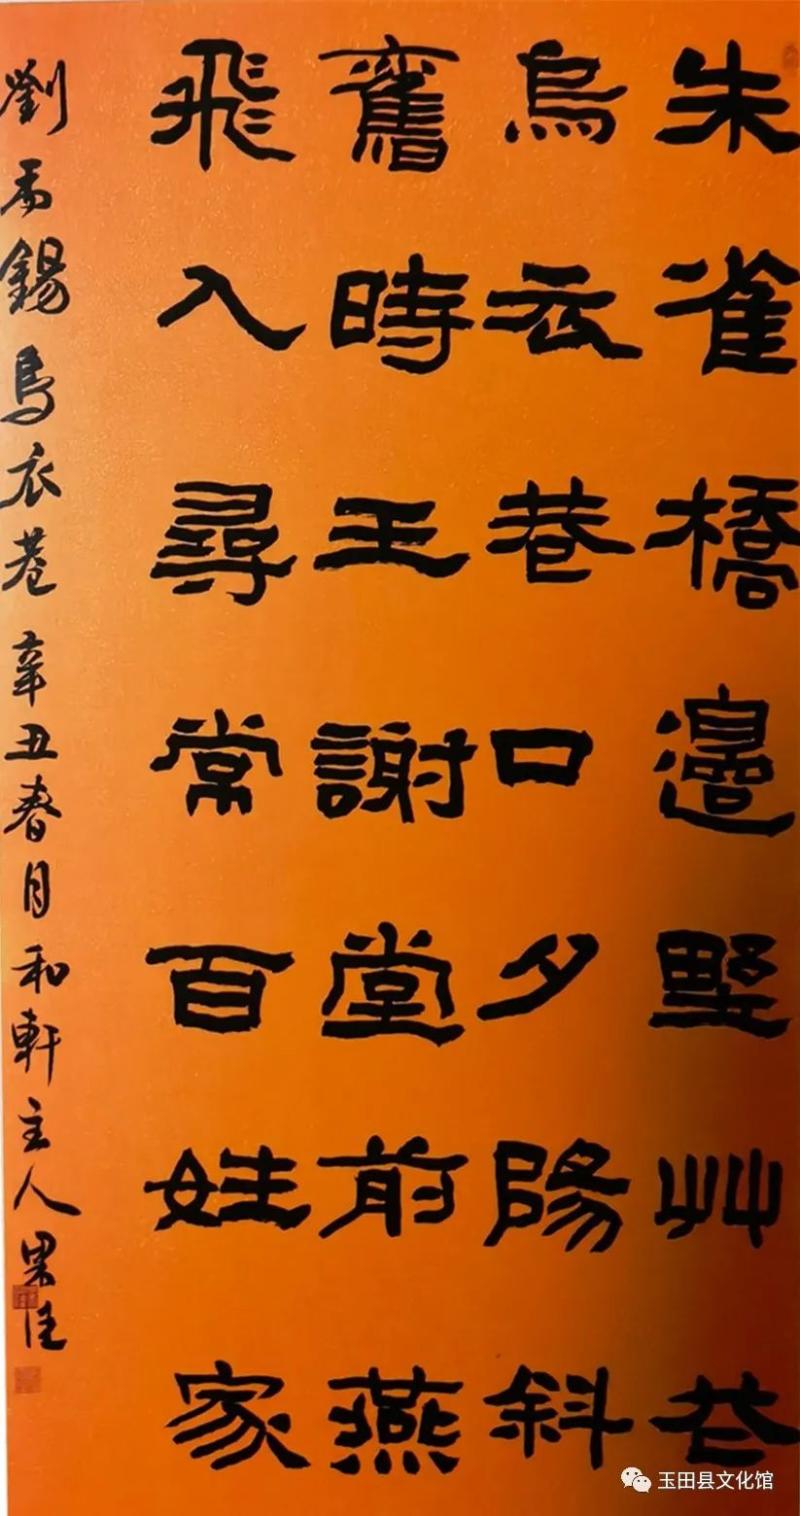 朱雀橋邊墅艸花
烏云巷口夕陽斜
舊時王謝堂前燕
飛入尋常百姓家
劉禹錫烏衣巷辛丑春月和軒主人果佳
玉田县文化馆